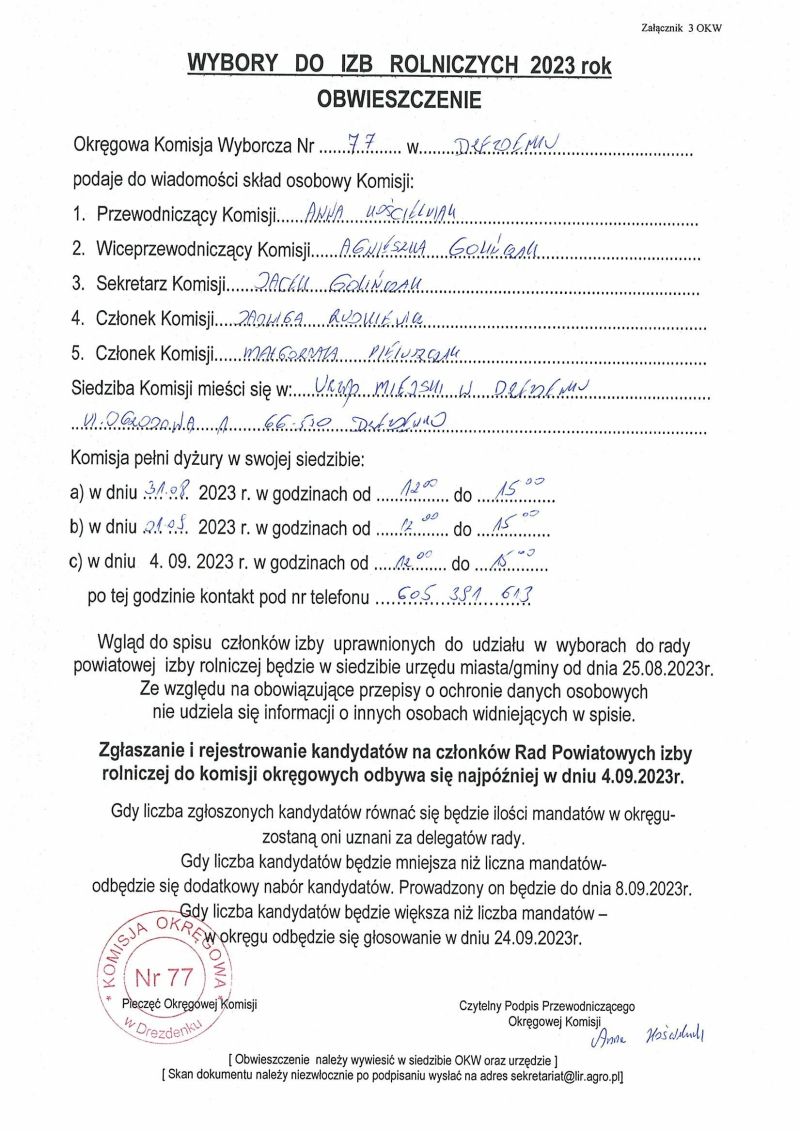 Załącznik 3 OKW
WYBORY DO IZB ROLNICZYCH 2023 rok
OBWIESZCZENIE
Okręgowa Komisja Wyborcza Nr ......77....... w.......DREZDENKU.......
podaje do wiadomości skład osobowy Komisji:
1. Przewodniczący Komisji.....ANNA KOŚCIELNIAK
2. Wiceprzewodniczący Komisji.....AGNIESZKA GOLIŃCZAK
3. Sekretarz Komisji.....JACEK GOLIŃCZAK
4. Członek Komisji.....JADWIGA RUDKIEWICZ
5. Członek Komisji.....MAŁGORZATA
Siedziba Komisji mieści się w:.....URZĄD MIEJSKI W DREZDENKU
Ul. OGRODOWA 1 66-530 DREZDENKO
Komisja pełni dyżury w swojej siedzibie:
a) w dniu 31.08. 2023 r. w godzinach od ....12 00 ....... do ....15 00 .......
b) w dniu 01.09. 2023 r. w godzinach od ....12 00 ....... do ....15 00 .......
c) w dniu 4. 09. 2023 r. w godzinach od ....12 00 ....... do ....15 00 .......
po tej godzinie kontakt pod nr telefonu ....605 391 613
Wgląd do spisu członków izby uprawnionych do udziału w wyborach do rady
powiatowej izby rolniczej będzie w siedzibie urzędu miasta/gminy od dnia 25.08.2023r.
Ze względu na obowiązujące przepisy o ochronie danych osobowych
nie udziela się informacji o innych osobach widniejących w spisie.
Zgłaszanie i rejestrowanie kandydatów na członków Rad Powiatowych izby
rolniczej do komisji okręgowych odbywa się najpóźniej w dniu 4.09.2023r.
Gdy liczba zgłoszonych kandydatów równać się będzie ilości mandatów w okręgu-
zostaną oni uznani za delegatów rady.
Gdy liczba kandydatów będzie mniejsza niż liczna mandatów-
odbędzie się dodatkowy nabór kandydatów. Prowadzony on będzie do dnia 8.09.2023r.
Gdy liczba kandydatów będzie większa niż liczba mandatów –
w okręgu odbędzie się głosowanie w dniu 24.09.2023r.
* KOMISJA OKRĘGOWA *
Nr 77
w Drezdenku
Pieczęć Okręgowej Komisji
Czytelny Podpis Przewodniczącego
Okręgowej Komisji
Anna Kościelniak
[ Obwieszczenie należy wywiesić w siedzibie OKW oraz urzędzie ]
[ Skan dokumentu należy niezwłocznie po podpisaniu wysłać na adres sekretariat@lir.agro.pl]